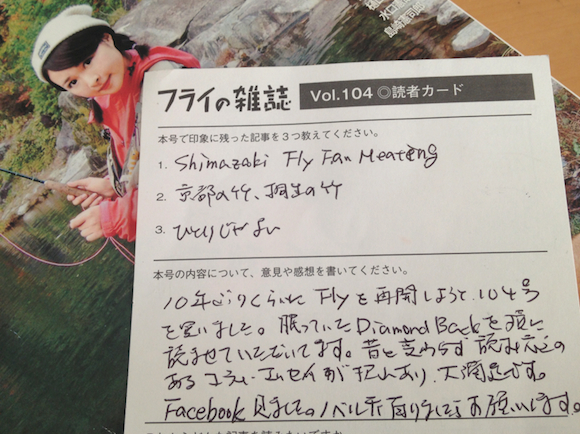 フライの雑誌 Vol.104◎読者カード
本号で印象に残った記事を3つ教えてください。
1. Shimazaki Fly Fan Meating
2. 京都の竹、桐生の竹
3. ひとりじゃない
本号の内容について、意見や感想を書いてください。
10年ぶりくらいに Flyを再開しようと、104号
を買いました。眠っていた Diamond Backを
読ませていただいてます。昔と変わらず 読み応えの
あるコラム・エッセイが沢山あり、大満足です。
Facebook見ました。ノベルティ有りましたらお願いします。